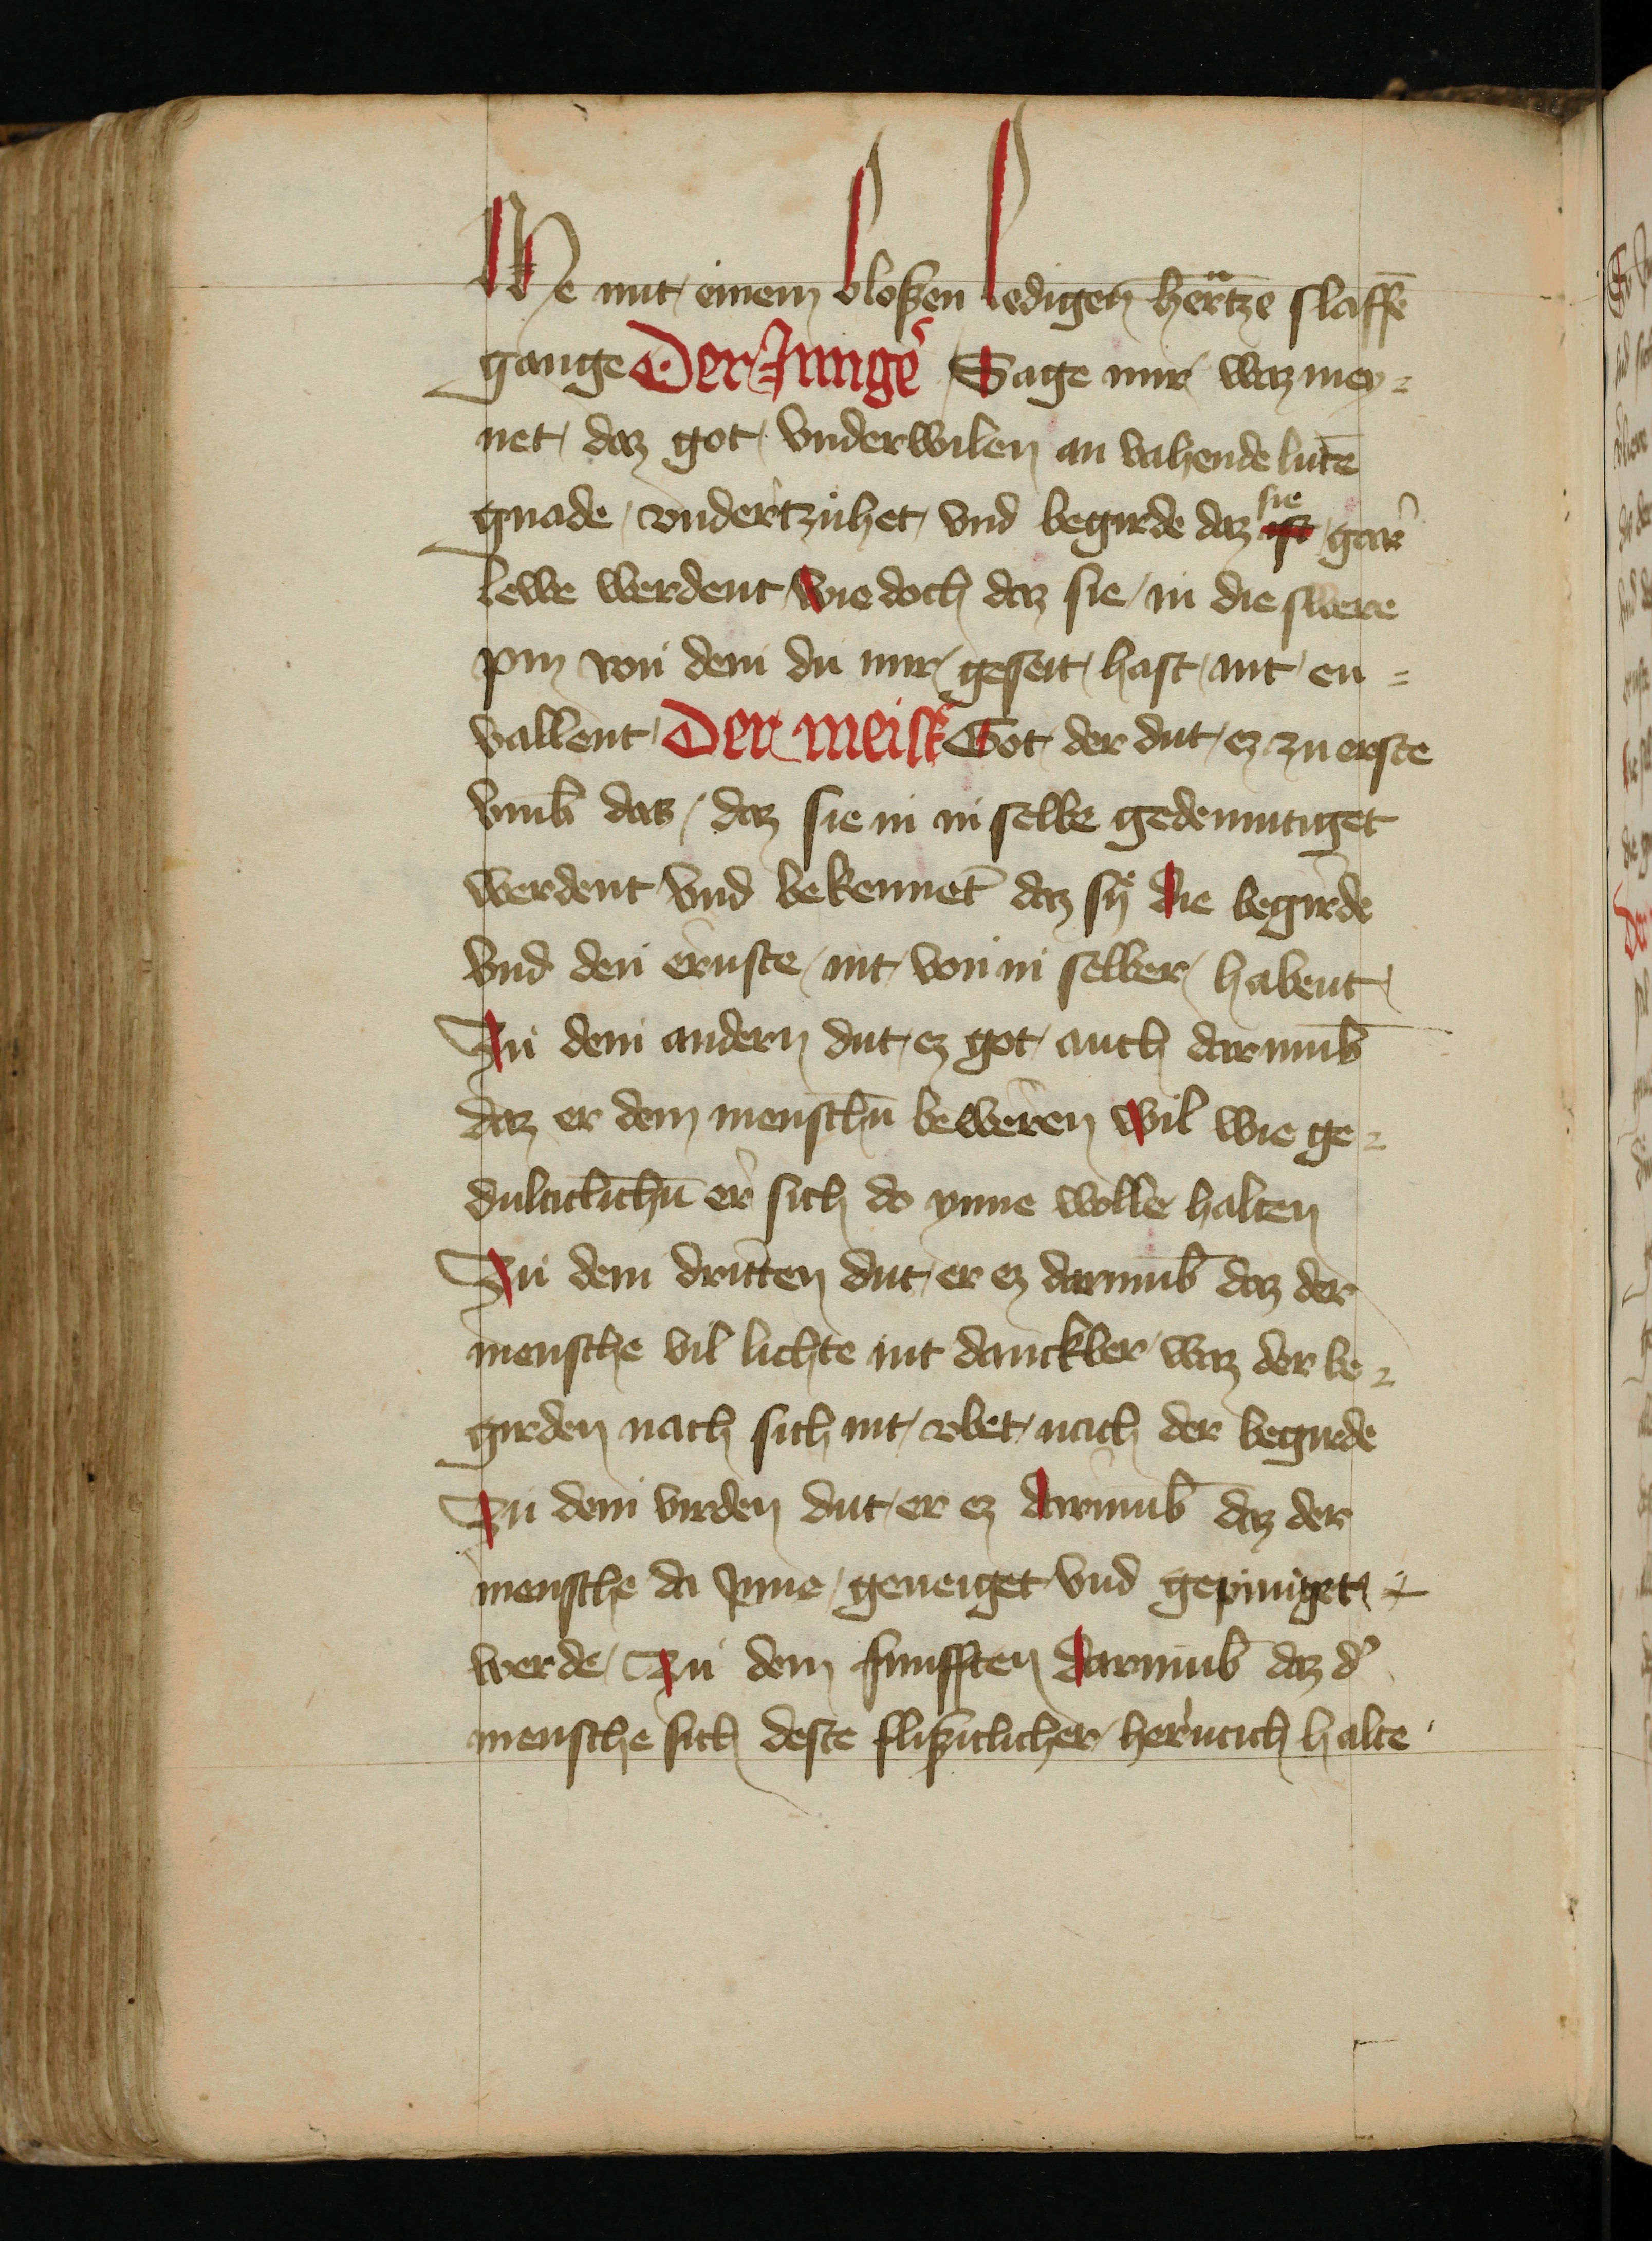 We mit einem bloßen ledigen hertze slaffē
gange Der Jungē Sage mir waz mey⸗
net daz got vnderwilen an vahende lutē
gnade vndertzuhet vnd begirde daz sie gar
lewe werdent wie doch daz sie in die swere
pin von dem du mir geseit hast nit en⸗
vallent Der meist̄ Got der dut ez zu erste
vmb das daz sie in in selbe gedemutiget
werdent vnd bekennet daz sy die begirde
vnd den ernste nit von in selber habent
Zu dem andern dut ez got auch darumb
daz er dem menschū beweren wil wie ge⸗
dulticlichū er sich do ynne wolle halten
Zu dem dritten dut er ez darumb daz der
mensche vil lichte nit danckber waz der be⸗
girden nach sich nit vbet nach der begirde
Zu dem virden dut er ez darumb daz der
mensche da ynne geneiget vnd gepiniget
werde Zu dem funfften darumb daz d̓
mensche sich deste flißiclicher hernach halte